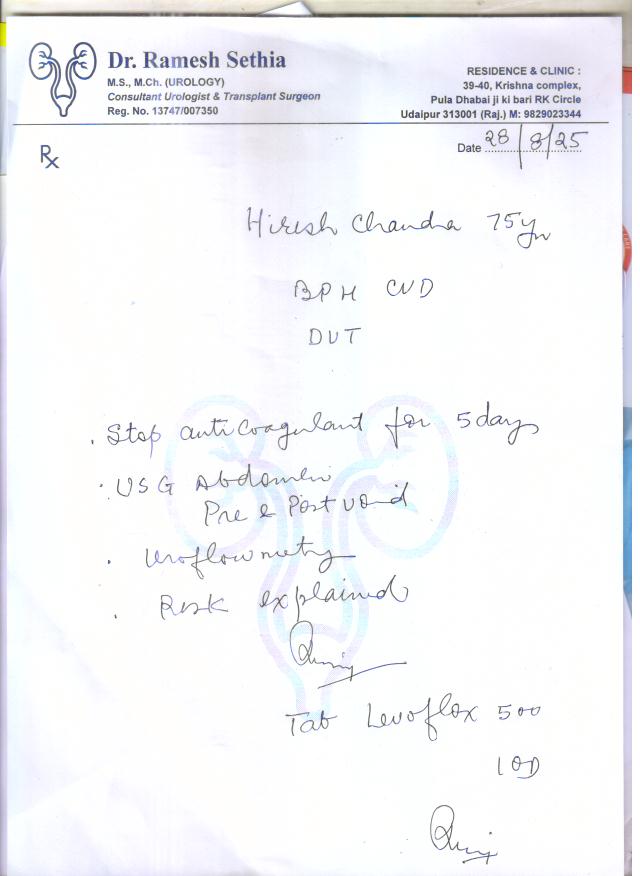 Dr. Ramesh Sethia
M.S., M.Ch. (UROLOGY)
Consultant Urologist & Transplant Surgeon
Reg. No. 13747/007350
RESIDENCE & CLINIC :
39-40, Krishna complex,
Pula Dhabai ji ki bari RK Circle
Udaipur 313001 (Raj.) M: 9829023344
Rx
Date 28/8/25
Hiresh Chandra 75yr
BPH CVD
DVT
. Stop anticoagulant for 5 days
. USG Abdomen
Pre & Post void
. Uroflowmetry
. Risk explained
Tab Levoflox 500
1 OD